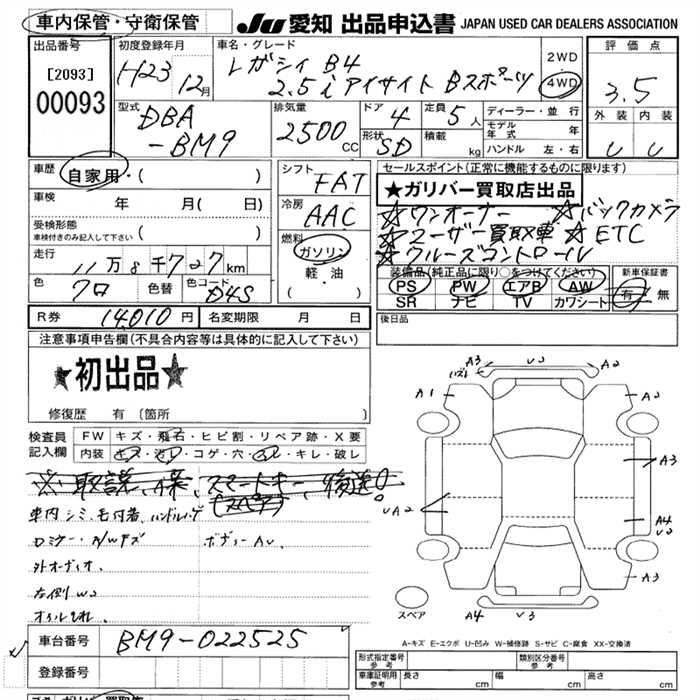 車内保管・守衛保管
JU 愛知 出品申込書 JAPAN USED CAR DEALERS ASSOCIATION
出品番号
[2093]
00093
初度登録年月
H23 12月
車名・グレード
レガシィ B4
2.5i アイサイト Bスポーツ
2WD
4WD
評価点
3.5
外装 内装
C C
型式
DBA
-BM9
排気量
2500 CC
ドア 4
形状 SD
定員 5人
積載 kg
ディーラー・並行
モデル年式 年
ハンドル 左・右
車歴
自家用・( )
車検 年 月( 日)
受検形態
車検付きのみ記入して下さい ( )
走行 11万8千727km
色 クロ 色替 色コード D4S
シフト FAT
冷房 AAC
燃料
ガソリン
軽・油
( )
セールスポイント(正常に機能するものに限ります)
★ガリバー買取店出品
☆ワンオーナー ☆バックカメラ
☆ユーザー買取車 ☆ETC
☆クルーズコントロール
装備品(純正品に限り○をつけてください)
PS PW エアB AW
SR ナビ TV カワシート
新車保証書
有・無
R券 14010円 名変期限 月 日
後日品
注意事項申告欄(不具合内容等は具体的に記入して下さい)
★初出品★
修復歴 有(箇所 )
検査員記入欄
FW キズ・飛石・ヒビ割・リペア跡・X要
内装 キズ・汚レ・コゲ・穴・スレ・キレ・破レ
※取説、スマートキー、後送!
(スペア)
車内シミ、毛付着、ハンドルハゲ
ロミラー・A/Wキズ ボディーAU、
外オーディオ、
右側 W2
オイルもれ、
A3 U3 A2
A1 A2
A3
UA2
A4
U2
A3
A4 U3
スペア
A-キズ E-エクボ U-凹み W-補修跡 S-サビ C-腐食 XX-交換済
車台番号 BM9-022525
登録番号
形式指定番号 参考
類別区分番号 参考
車庫証明用 参考 長さ cm 幅 cm 高さ cm